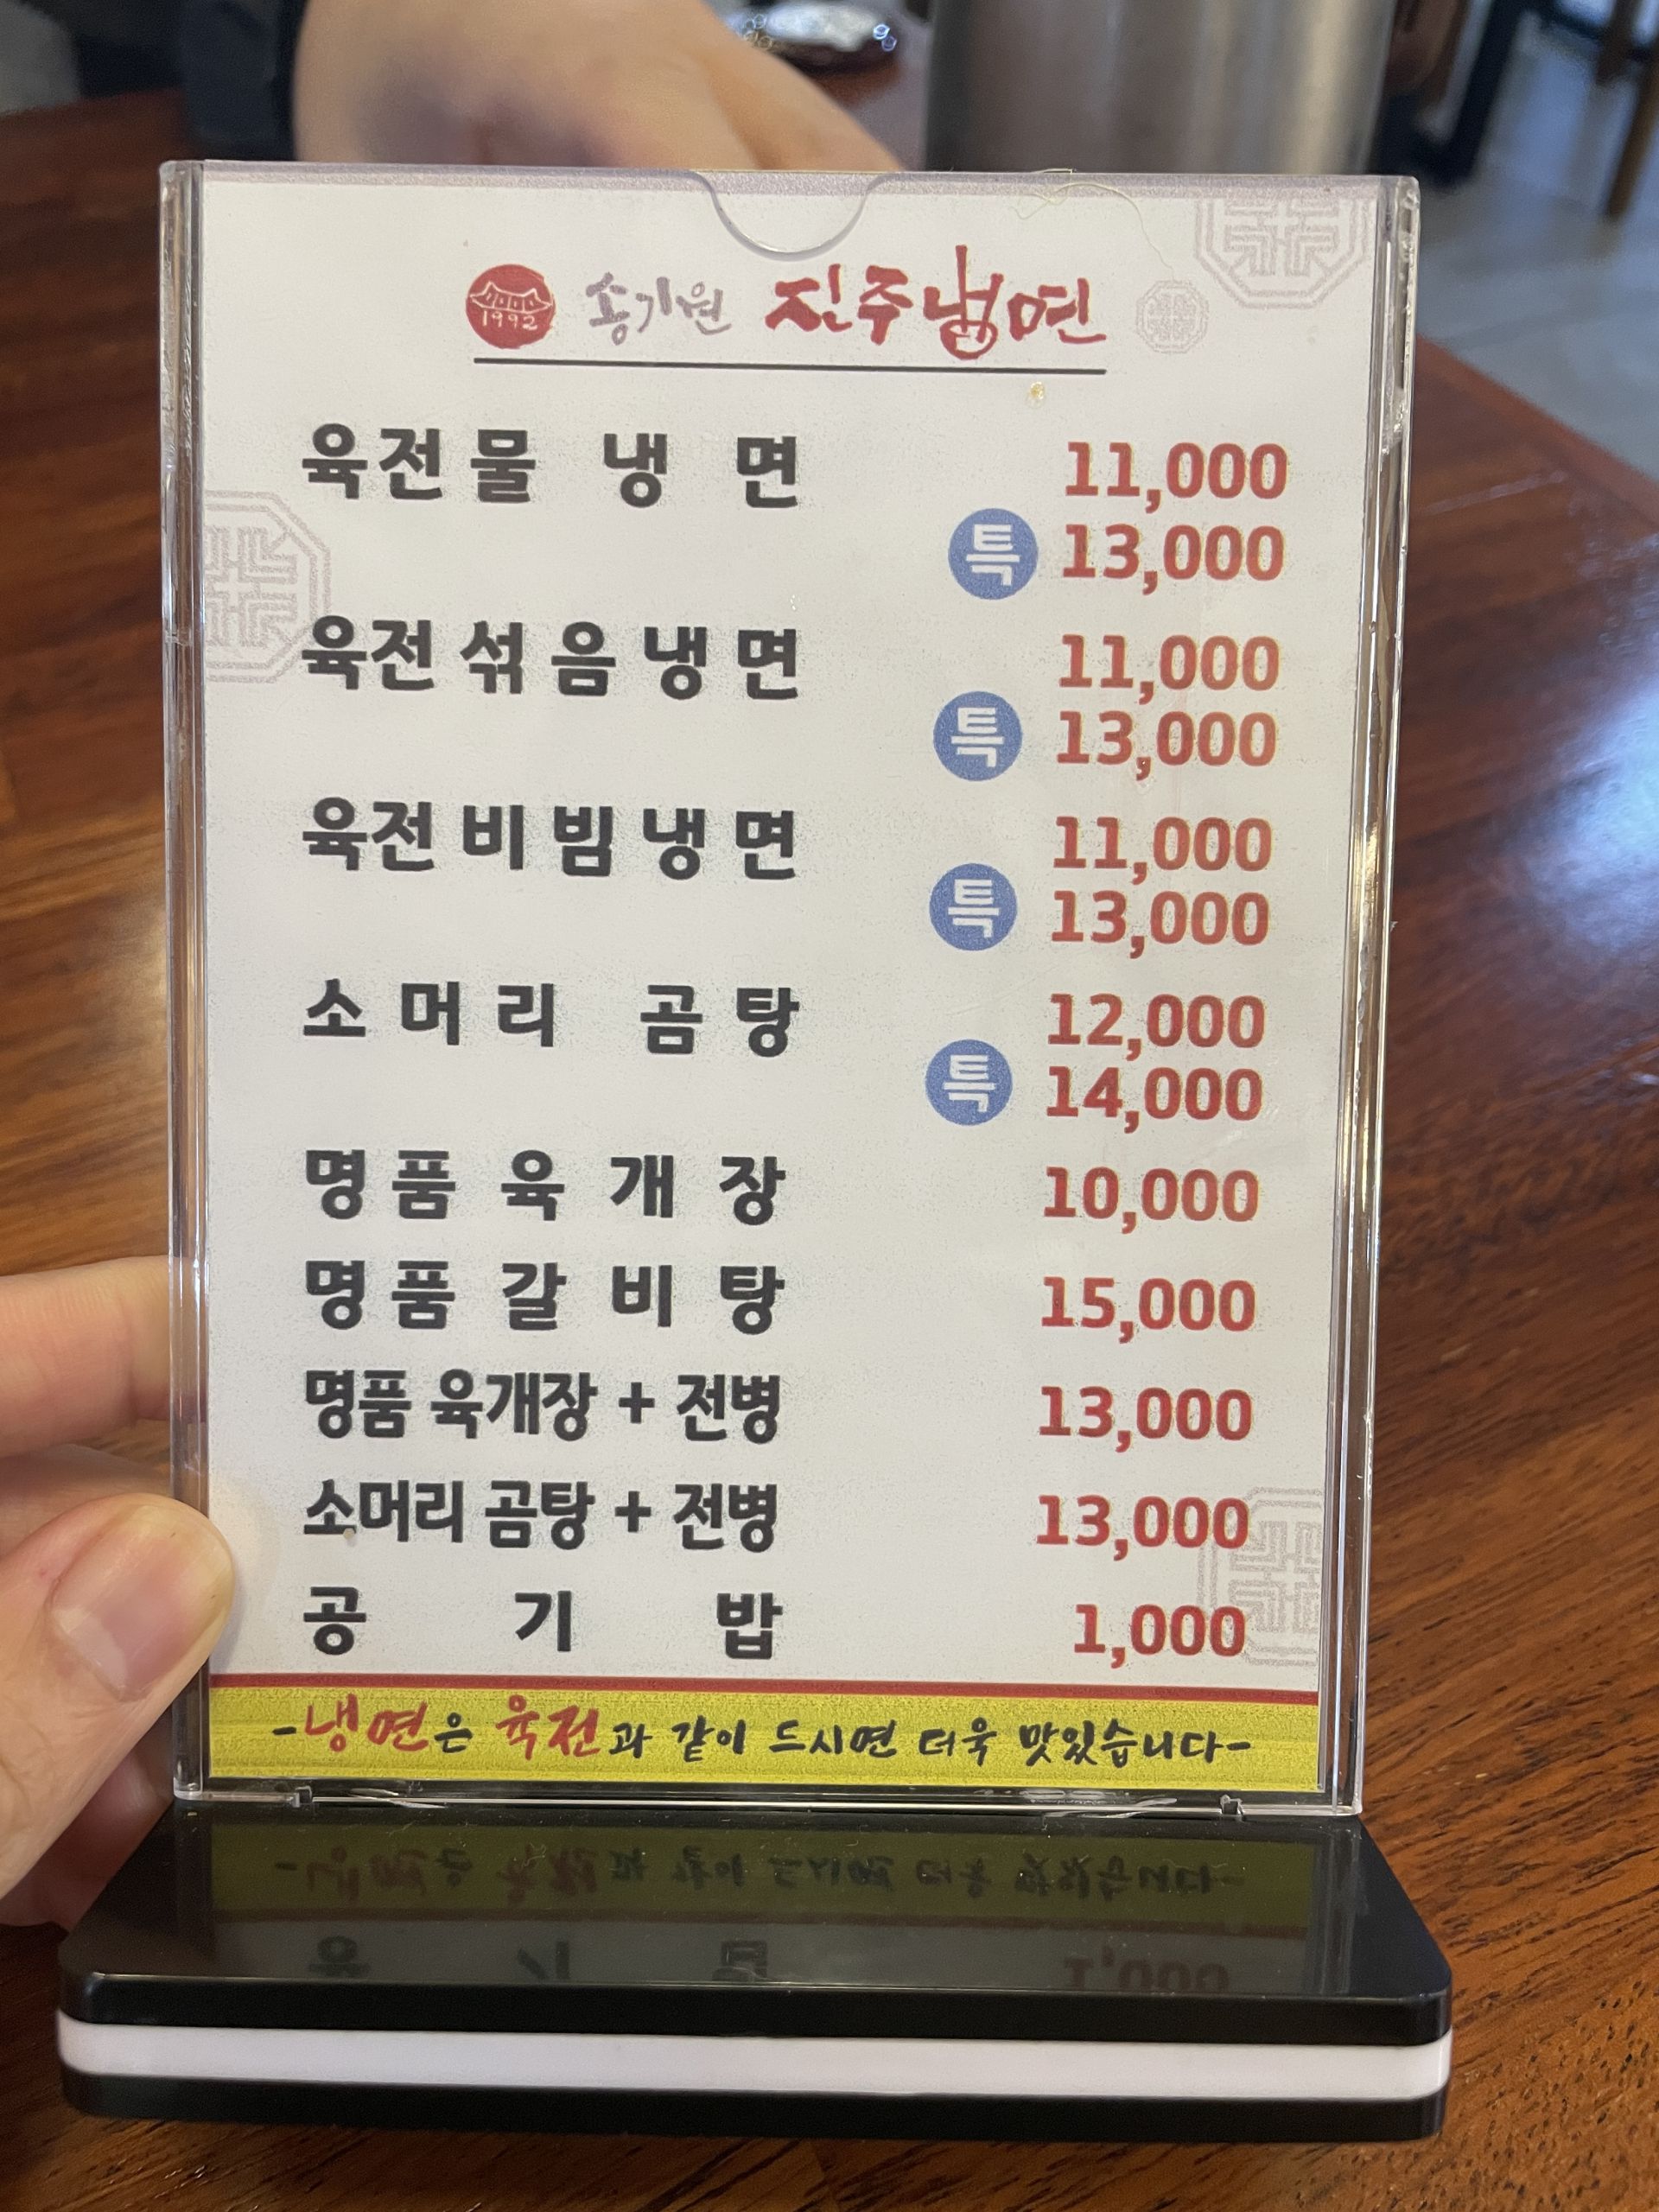 1992 송기원 진주냉면
육전물냉면 11,000
특 13,000
육전섞음냉면 11,000
특 13,000
육전비빔냉면 11,000
특 13,000
소머리 곰탕 12,000
특 14,000
명품 육개장 10,000
명품 갈비탕 15,000
명품 육개장 + 전병 13,000
소머리 곰탕 + 전병 13,000
공기밥 1,000
-냉면은 육전과 같이 드시면 더욱 맛있습니다-